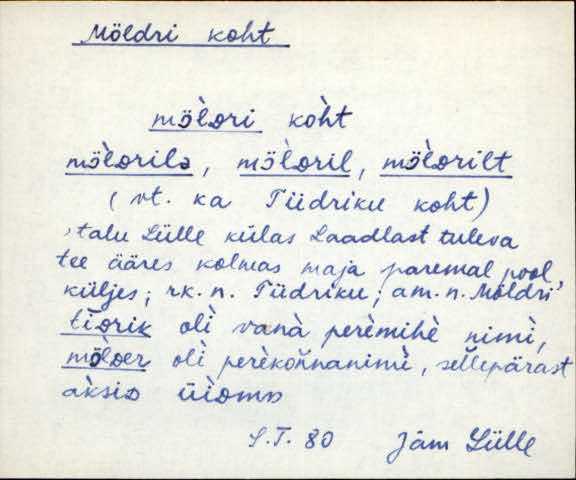 Möldri koht
mö̀lᴅri kòht
mö̀lᴅrilᴅ, mö̀lᴅril, mö̀lᴅrilt
(vt. ka Tiidriku koht)
'talu Lülle külas Laadlast tuleva
tee ääres kolmas maja paremal pool
küljes; rk. n. Tiidriku; am. n. Möldri'
tìᴅrik olì vanà perèmihè nimì,
mö̀lᴅer olì perèkoǹnanimì, sellepärast
S.T. 80 Jäm Lülle